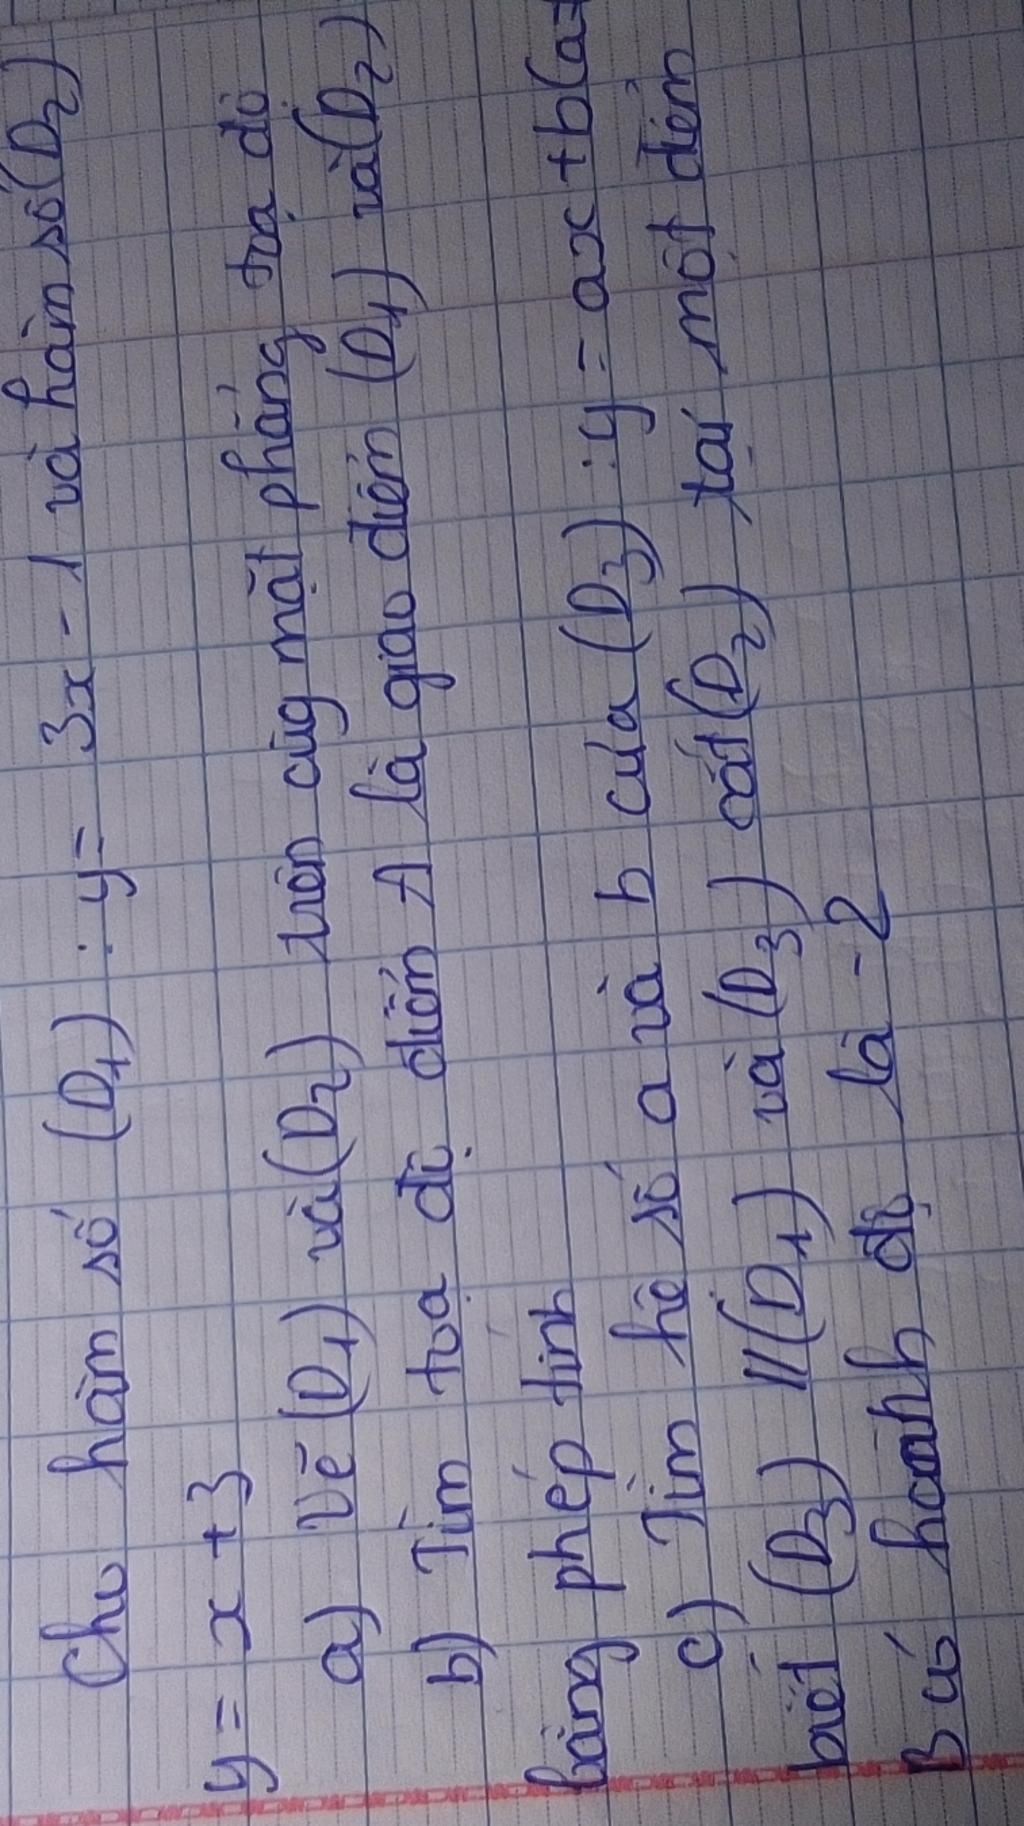 Cho hàm số (D1) : y = 3x - 1 và hàm số (D2)
y = x + 3
a) Vẽ (D1) và (D2) trên cùng mặt phẳng toạ độ
b) Tìm toạ độ điểm A là giao điểm (D1) và (D2)
bằng phép tính
c) Tìm hệ số a và b của (D3) : y = ax + b (a
biết (D3) // (D1) và (D3) cắt (D2) tại một điểm
B có hoành độ là -2